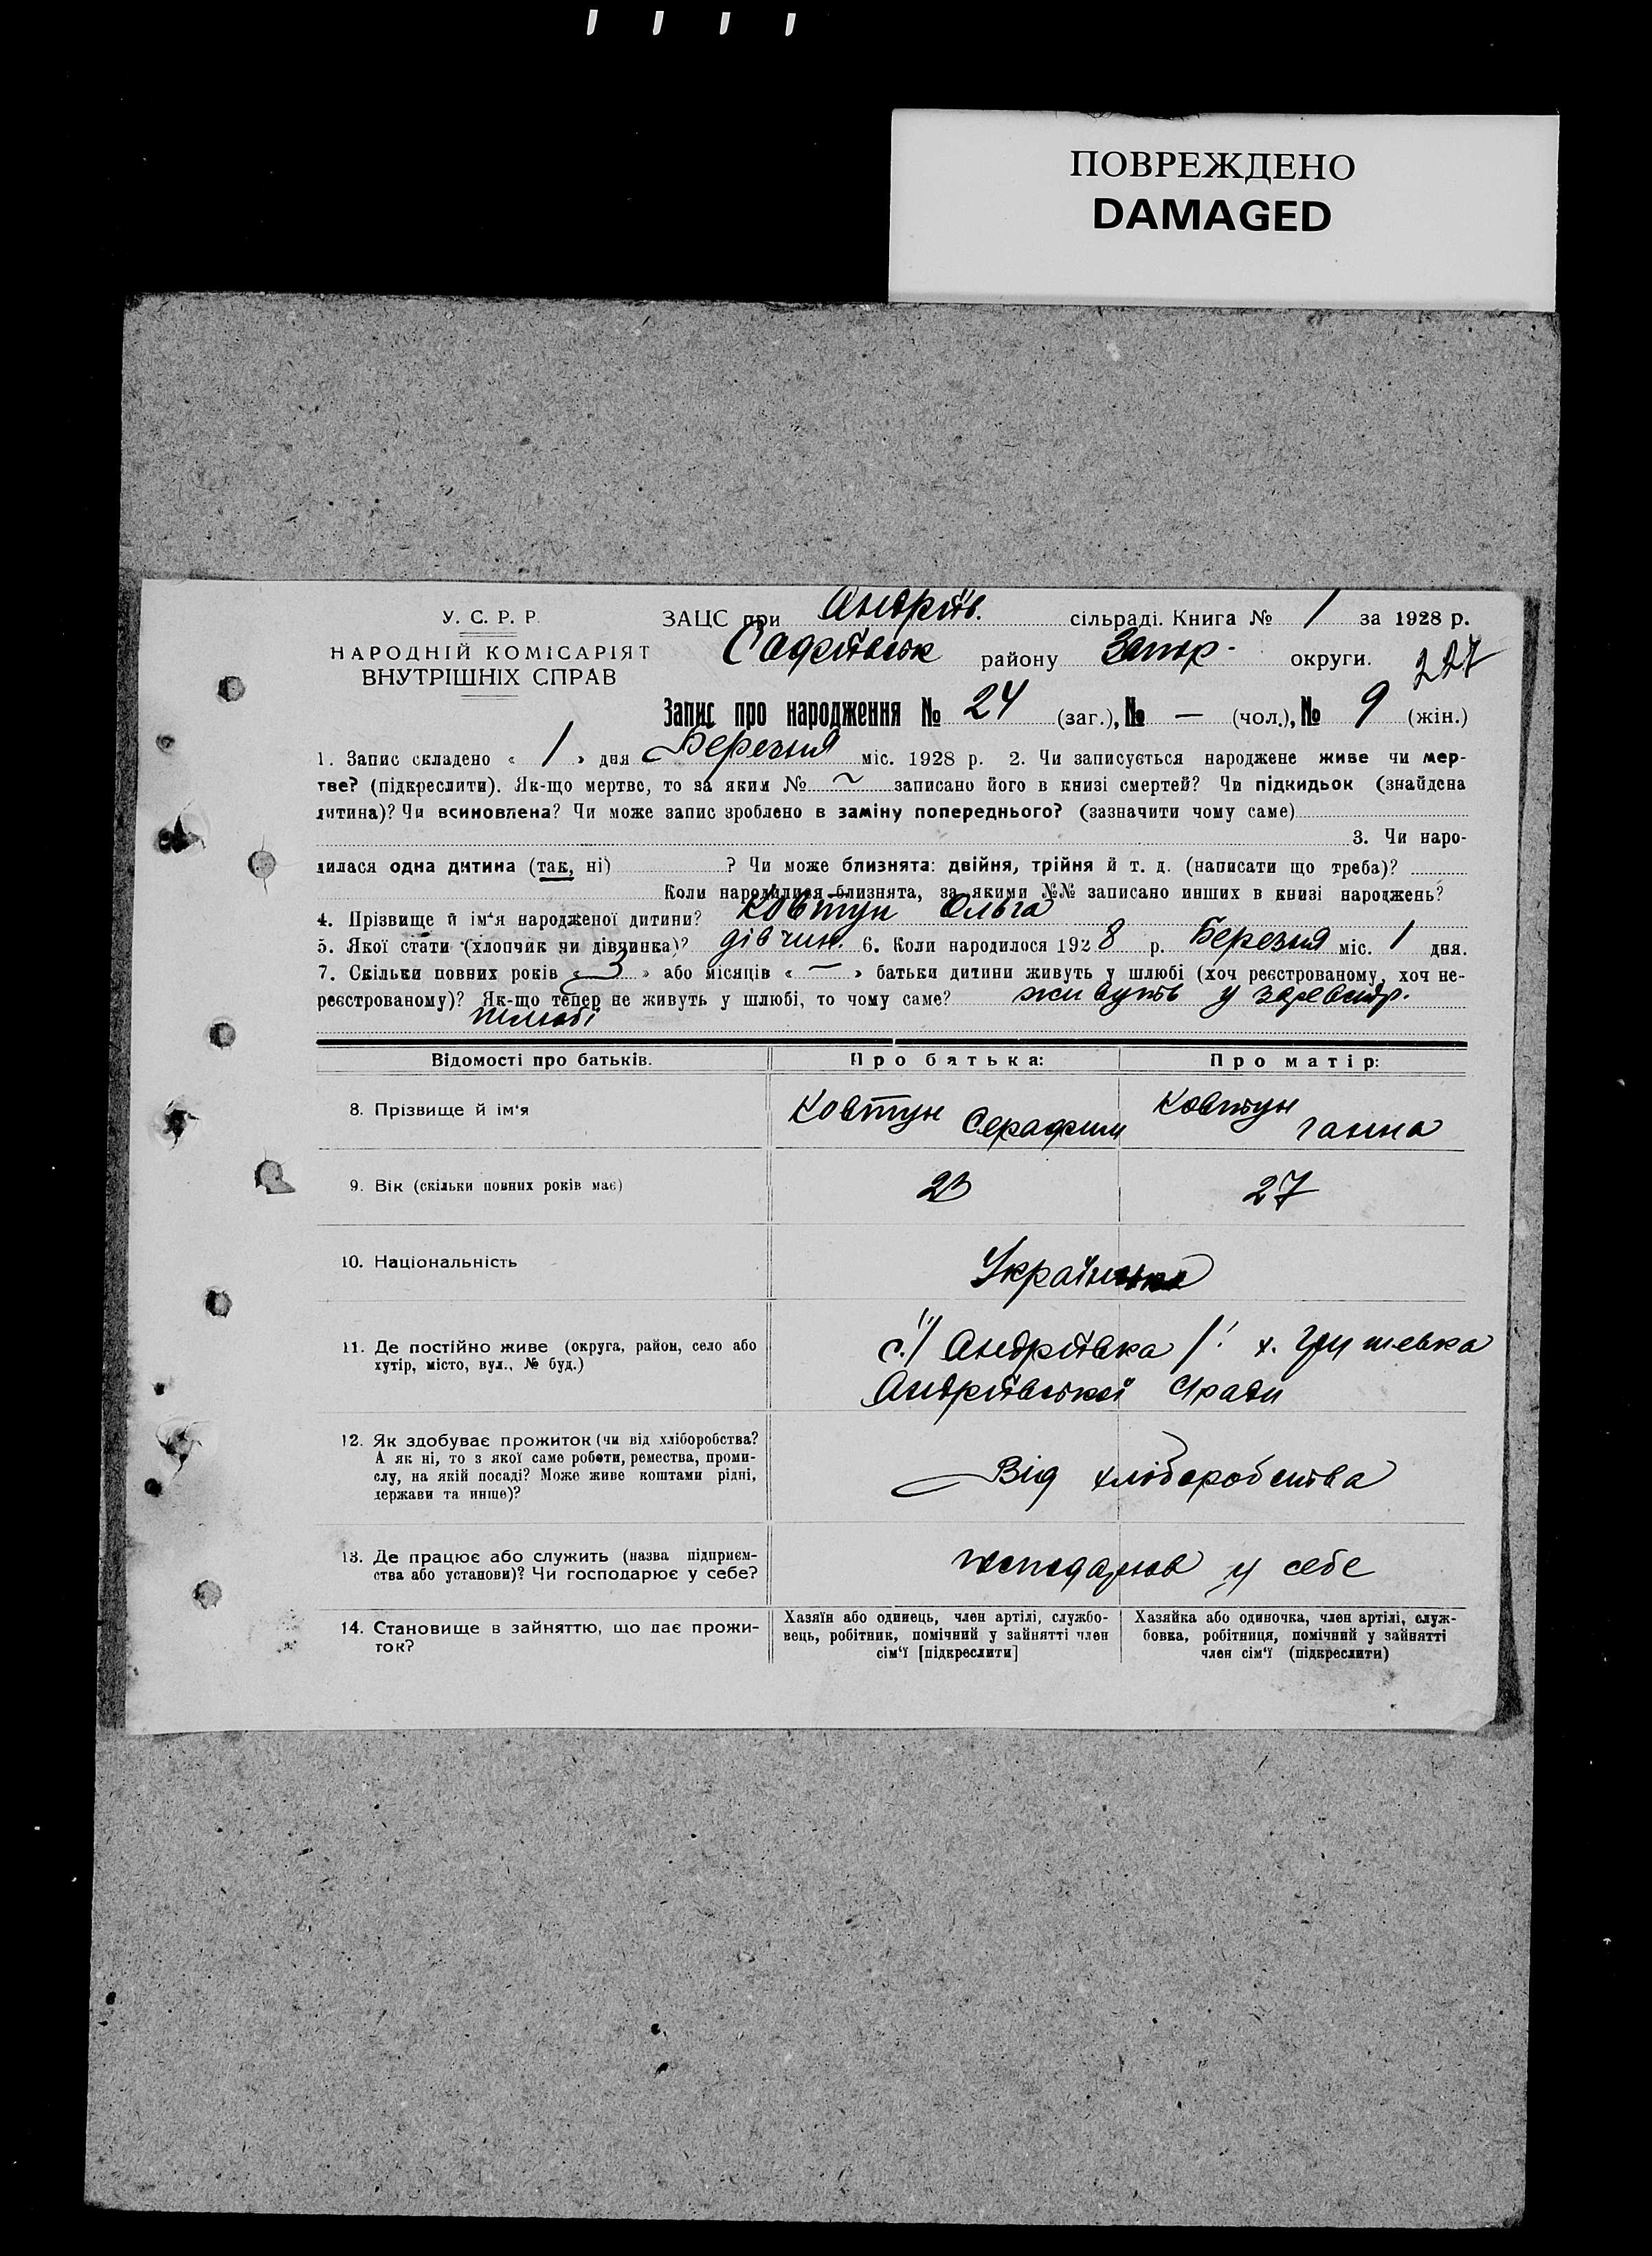 ПОВРЕЖДЕНО
DAMAGED
У. С. Р. Р.
НАРОДНІЙ КОМІСАРІЯТ
ВНУТРІШНІХ СПРАВ
ЗАЦС при Андріїв. сільраді. Книга № 1 за 1928 р.
району Запор. округи. 227
Запис про народження № 24 (заг.), № — (чол.), № 9 (жін.)
1. Запис складено « 1 » дня Березня міс. 1928 р. 2. Чи записується народжене живе чи мер-
тве? (підкреслити). Як-що мертве, то за яким № ~ записано його в книзі смертей? Чи підкидьок (знайдена
дитина)? Чи всиновлена? Чи може запис зроблено в заміну попереднього? (зазначити чому саме)
3. Чи наро-
дилася одна дитина (так, ні) ? Чи може близнята: двійня, трійня й т. д. (написати що треба)?
Коли народилися близнята, за якими №№ записано инших в книзі народжень?
4. Прізвище й ім‘я народженої дитини? Ковтун Ольга
5. Якої стати (хлопчик чи дівчинка)? дівчин. 6. Коли народилося 1928 р. Березня міс. 1 дня.
7. Скільки повних років « 3 » або місяців « — » батьки дитини живуть у шлюбі (хоч реєстрованому, хоч не-
реєстрованому)? Як-що тепер не живуть у шлюбі, то чому саме? живуть у зареєстр.
шлюбі
Відомості про батьків. Про батька: Про матір:
8. Прізвище й ім‘я Ковтун Серафим Ковтун Ганна
9. Вік (скільки повних років має) 23 27
10. Національність
11. Де постійно живе (округа, район, село або
хутір, місто, вул., № буд.)
с. Андріївка х. Грушевка
Андріївської с/ради
12. Як здобуває прожиток (чи від хліборобства?
А як ні, то з якої саме роботи, ремества, проми-
слу, на якій посаді? Може живе коштами рідні,
держави та инше)?
Від хліборобства
13. Де працює або служить (назва підприєм-
ства або установи)? Чи господарює у себе?
господарюв у себе
14. Становище в зайняттю, що дає прожи-
ток?
Хазяїн або одинець, член артілі, службо-
вець, робітник, помічний у зайнятті член
сім‘ї [підкреслити]
Хазяйка або одиночка, член артілі, служ-
бовка, робітниця, помічний у зайнятті
член сім‘ї (підкреслити)